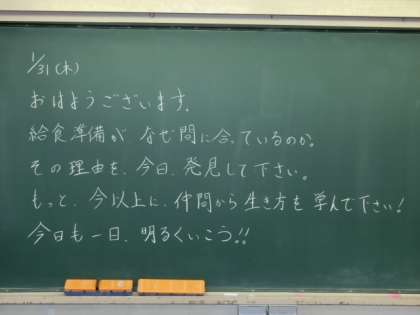 1/31(木)
おはようございます。
給食準備が なぜ間に合っているのか。
その理由を、今日、発見して下さい。
もっと、今以上に、仲間から生き方を学んで下さい!
今日も一日、明るくいこう!!